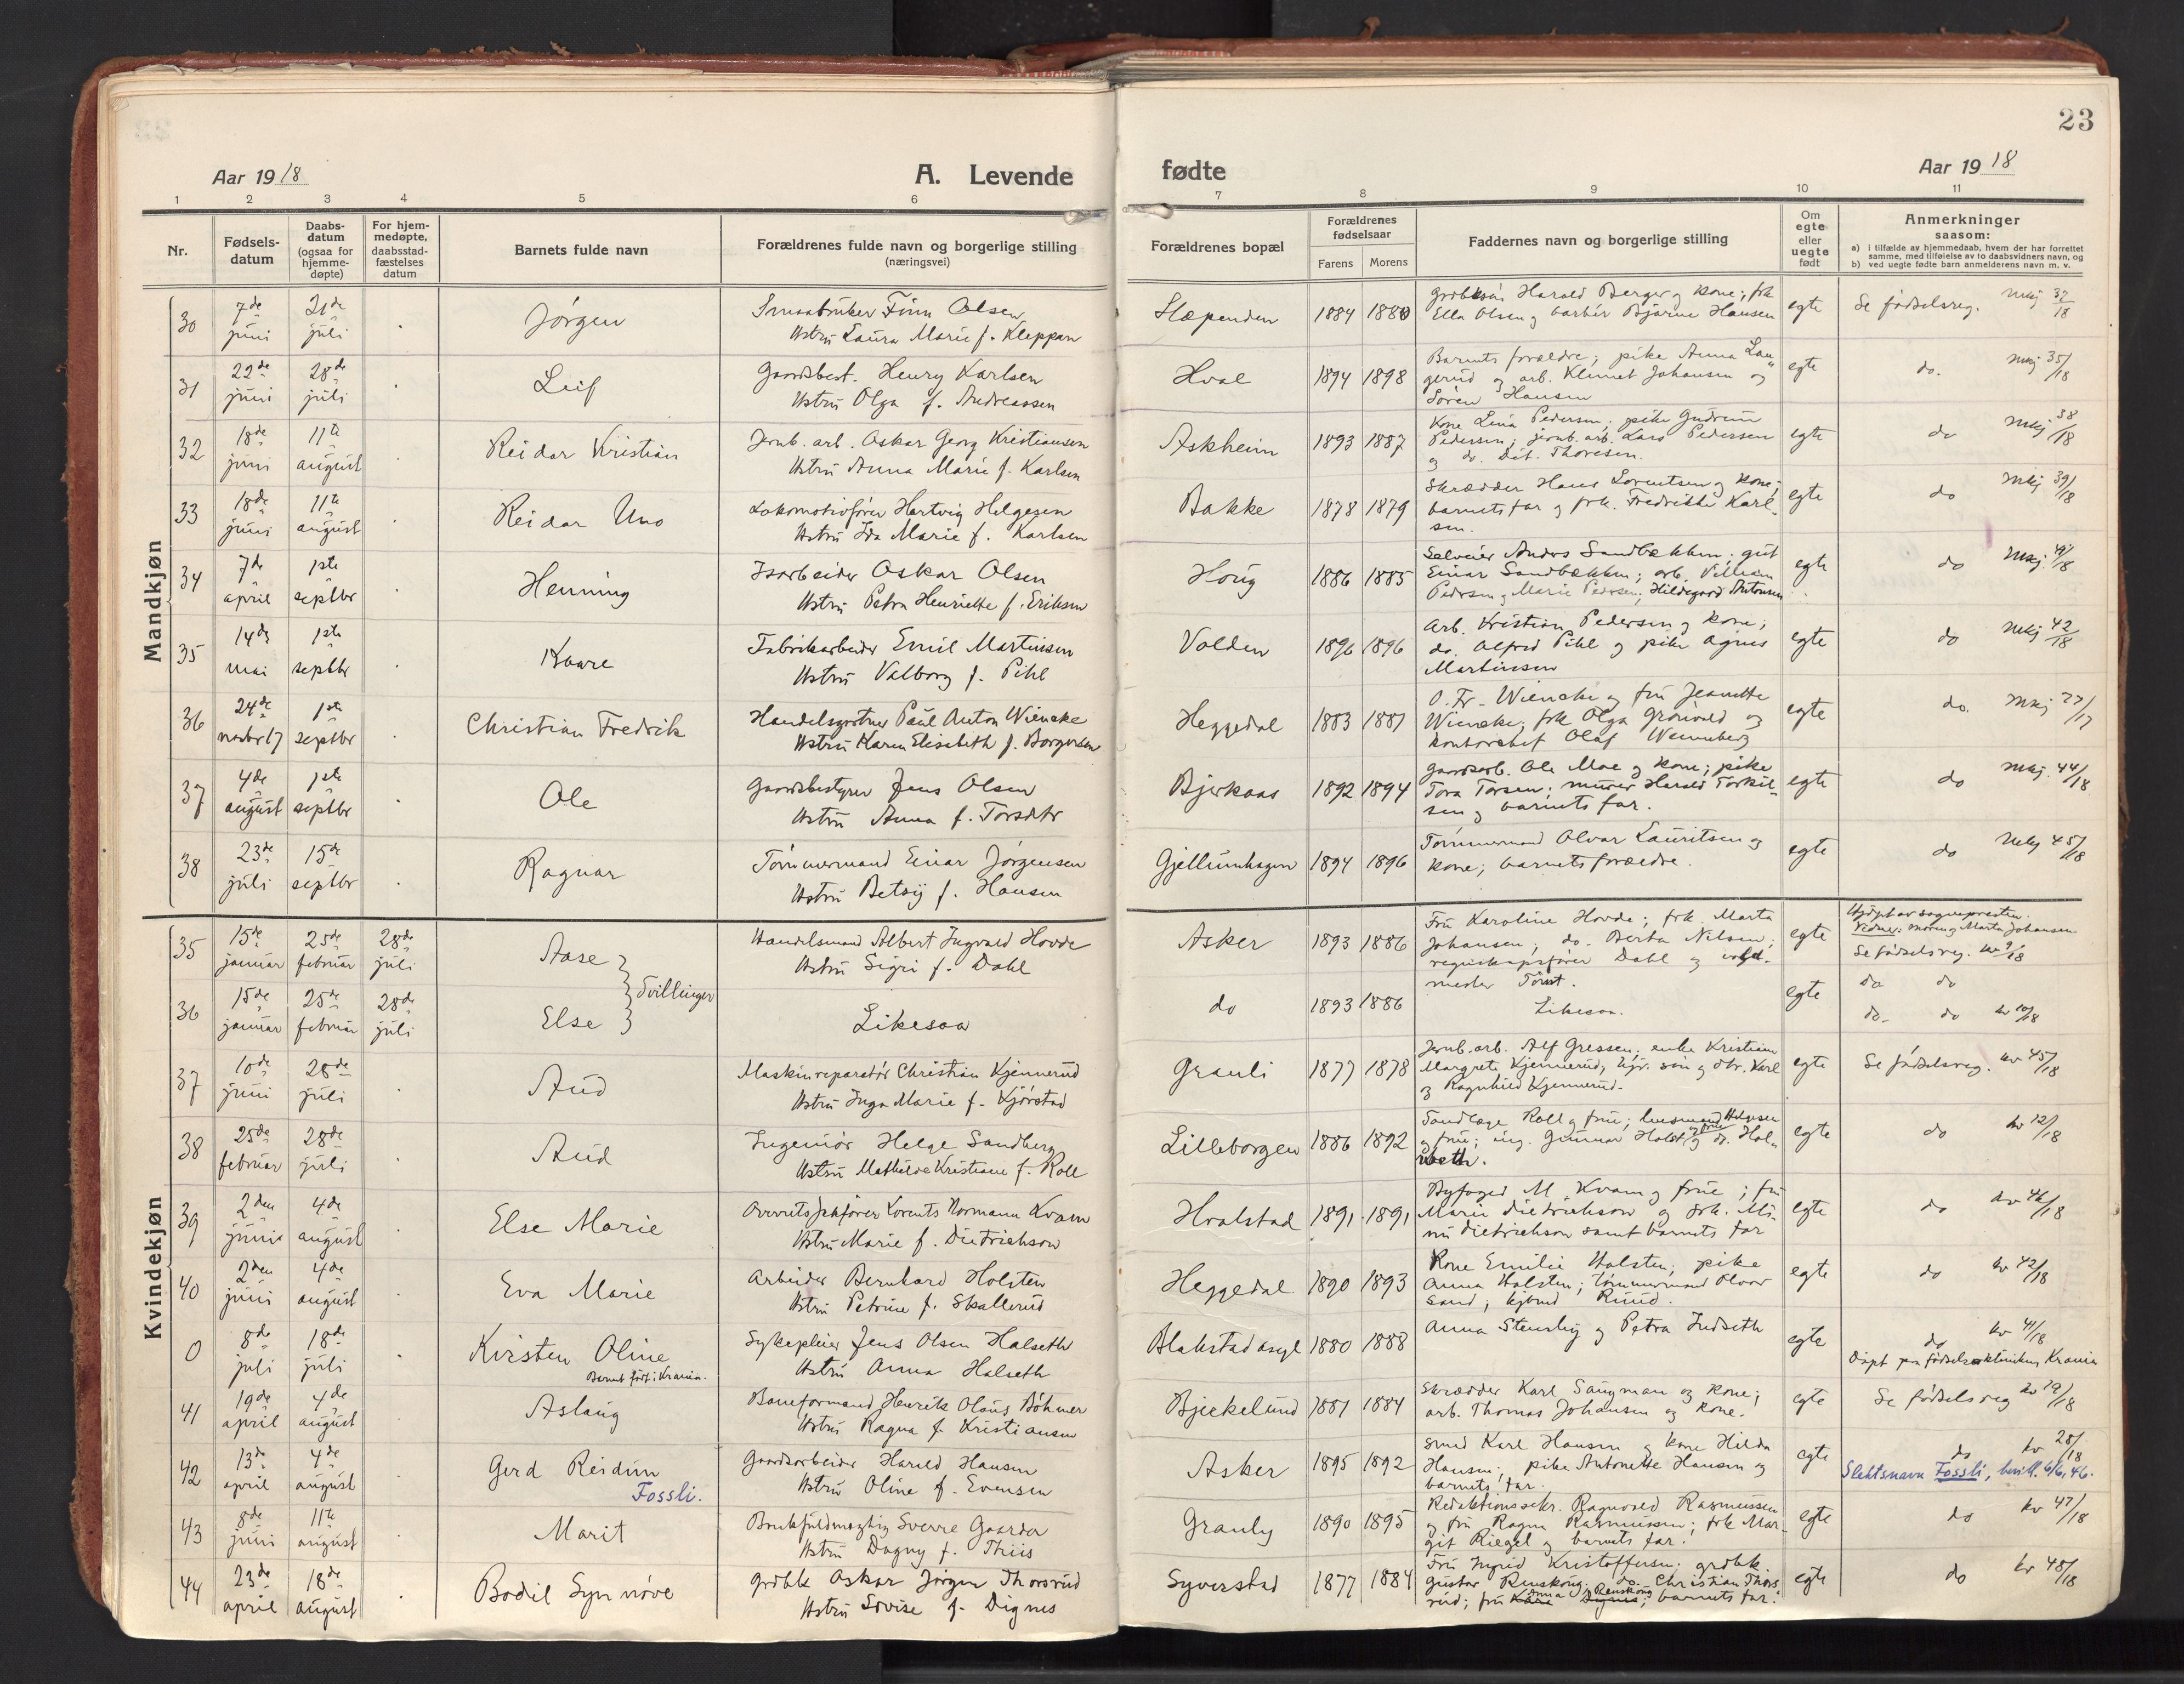 23
Aar 1918
A. Levende
fødte
Aar 1918
1 2 3 4 5 6 7 8 9 10 11
Nr.
Fødsels-
datum
Daabs-
datum
(ogsaa for
hjemme-
døpte)
For hjem-
medøpte,
daabsstad-
fæstelses
datum
Barnets fulde navn
Forældrenes fulde navn og borgerlige stilling
(næringsvei)
Forældrenes bopæl
Forældrenes
fødselsaar
Farens Morens
Faddernes navn og borgerlige stilling
Om
egte
eller
uegte
født
Anmerkninger
saasom:
a) i tilfælde av hjemmedaab, hvem der har forrettet
samme, med tilføielse av to daabsvidners navn, og
b) ved uegte fødte barn anmelderens navn m. v.
Mandkjøn
30 7de juni 21de juli Jørgen
Smaabruker Finn Olsen
Hstru Laura Marie f. Kleppan
Slæpenden 1884 1880
Grdbr.søn Harald Berger og kone; frk
Ella Olsen og barbér Bjarne Hansen
egte Se fødselsreg. Mkj 37/18
31 22de juni 28de juli Leif
Gaardsbest. Henry Karlsen
Hstru Olga f. Andreassen
Hval 1894 1898
Barnets forældre; pike Anna Lau
gerud og arb. Klemet Johansen og
Søren Hansen
egte do. Mkj 35/18
32 18de juni 11te august Reidar Kristian
Jernb. arb. Oskar Georg Kristiansen
Hstru Anna Marie f. Karlsen
Askheim 1893 1887
Kone Lina Pedersen; pike Gudrun
Pedersen; jernb. arb. Lars Pedersen
og do. Dit. Thoresen.
egte do Mkj 38/18
33 18de juni 11te august Reidar Uno
Lokomotivfører Hartvig Helgesen
Hstru Ida Marie f. Karlsen
Bakke 1878 1879
Skrædder Hans Lorentsen og kone;
barnets far og frk. Fredrikke Karl-
sen.
egte do Mkj 39/18
34 7de april 1ste septbr Henning
Isarbeider Oskar Olsen
Hstru Petra Henriette f. Eriksen
Houg 1886 1885
Selveier Anders Sandbækken; gut
Einar Sandbækken; arb. Villiam
Pedersen og Marie Pedersen, Hildegard Antonsen
egte do Mkj. 41/18
35 14de mai 1ste septbr Kaare
Fabrikarbeider Emil Martinsen
Hstru Valborg f. Pihl
Volden 1896 1896
Arb. Kristian Pedersen og kone;
do. Alfred Pihl og pike Agnes
Martinsen
egte do Mkj 42/18
36 24de novbr 17 1ste septbr Christian Fredrik
Handelsgartner Paul Anton Wiencke
Hstru Karen Elisabeth f. Borgersen
Heggedal 1883 1881
O. Fr. Wiencke og fru Jeanette
Wiencke; frk Olga Grønvold og
kontorchef Olaf Wennberg
egte do. Mkj 77/17
37 4de august 1ste septbr Ole
Gaardsbestyrer Jens Olsen
Hstru Anna f. Torsdtr
Bjerkaas 1892 1894
Gaardsarb. Ole Moe og kone; pike
Tora Torsen; murer Harald Torkil-
sen og barnets far.
egte do Mkj. 44/18
38 23de juli 15de septbr Ragnar
Tømmermand Einar Jørgensen
Hstru Betsy f. Hansen
Gjellumhagen 1894 1896
Tømmermand Olvar Lauritsen og
kone; barnets forældre.
egte do Mkj 45/18
Kvindekjøn
35 15de januar 25de februar 28de juli Aase
Tvillinger
Handelsmand Albert Ingvald Hovde
Hstru Sigri f. Dahl
Asker 1893 1886
Fru Karoline Hovde; frk. Marta
Johansen; do. Berta Nilsen;
regnskapsfører Dahl og
mester
egte Hjdøpt av sognepresten.
Vidner: moren og Marta Johansen
Se fødselsreg. kv 9/18
36 15de januar 25de februar 28de juli Else
Likesaa
do 1893 1886 Likesaa. egte do do
do. do kv 10/18
37 10de juni 28de juli Aud
Maskinreparatør Christian Kjennerud
Hstru Inga Marie f. Kjørstad
Grauli 1877 1878
Jernb. arb. Alf Gressen; enke Kristiane
Margrete Kjennerud, hjv. søn og dtr. Karl
og Ragnhild Kjennerud.
egte Se fødselsreg. kv 45/18
38 25de februar 28de juli Aud
Ingeniør Helge Sandberg
Hstru Mathilde Kristiane f. Roll
Lilleborgen 1886 1892
Tandlæge Roll og frue; lensmand Helgesen
og frue; ing. Gunnar Holst og frue og dr. Hol-
beth.
egte do kv 12/18
39 2den juni 4de august Else Marie
Overretssakfører Lorents Normann Kvam
Hstru Marie f. Dietrichson
Hvalstad 1891 1891
Byfoged M. Kvam og frue; fru
Marie Dietrichson og frk. Mi-
mi Dietrichson samt barnets far
egte do kv 46/18
40 2den juni 4de august Eva Marie
Arbeider Bernhard Holsten
Hstru Petrine f. Skallerud
Heggedal 1890 1893
Kone Emilie Holsten; pike
Anna Holsten; tømmermand Olvar
Sand; Ruud.
egte do kv 42/18
0 8de juli 18de juli Kirsten Oline
Barnet født i Krania.
Sykepleier Jens Olsen Halseth
Hstru Anna Halseth
Blakstad asyl 1880 1888
Anna Stensby og Petra Indseth
egte do kv 41/18
Døpt paa fødselsklinikken Krania
41 19de april 4de august Aslaug
Baneformand Henrik Olaus Böhmer
Hstru Ragna f. Kristiansen
Bjerkelund 1881 1884
Skrædder Karl Saugman og kone;
arb. Thomas Johansen og kone.
egte Se fødselsreg kv 29/18
42 13de april 4de august Gerd Reidun
Fossli.
Gaardsarbeider Harald Hansen
Hstru Oline f. Evensen
Asker 1895 1892
Smed Karl Hansen og kone Hilda
Hansen; pike Antonette Hansen og
barnets far.
egte do kv 28/18
Slektsnavn Fossli, bevill. 6/6.46.
43 8de juni 11te august Marit
Brukfuldmægtig Sverre Gaarder
Hstru Dagny f. Thiis
Grauly 1890 1895
Redaktionssekr. Ragnvald Rasmussen
og fru Ragna Rasmussen; frk Mar-
git Riegel og barnets far.
egte do kv 47/18
44 23de april 18de august Bodil Synnøve
Grdbr. Oskar Jørgen Thorsrud
Hstru Lovise f. Dignes
Syverstad 1877 1884
Fru Ingrid Kristoffersen; grdbr.
Gustav Renskoug; do. Christian Thors-
rud; fru Anna Renskoug; barnets far.
egte do kv 48/18